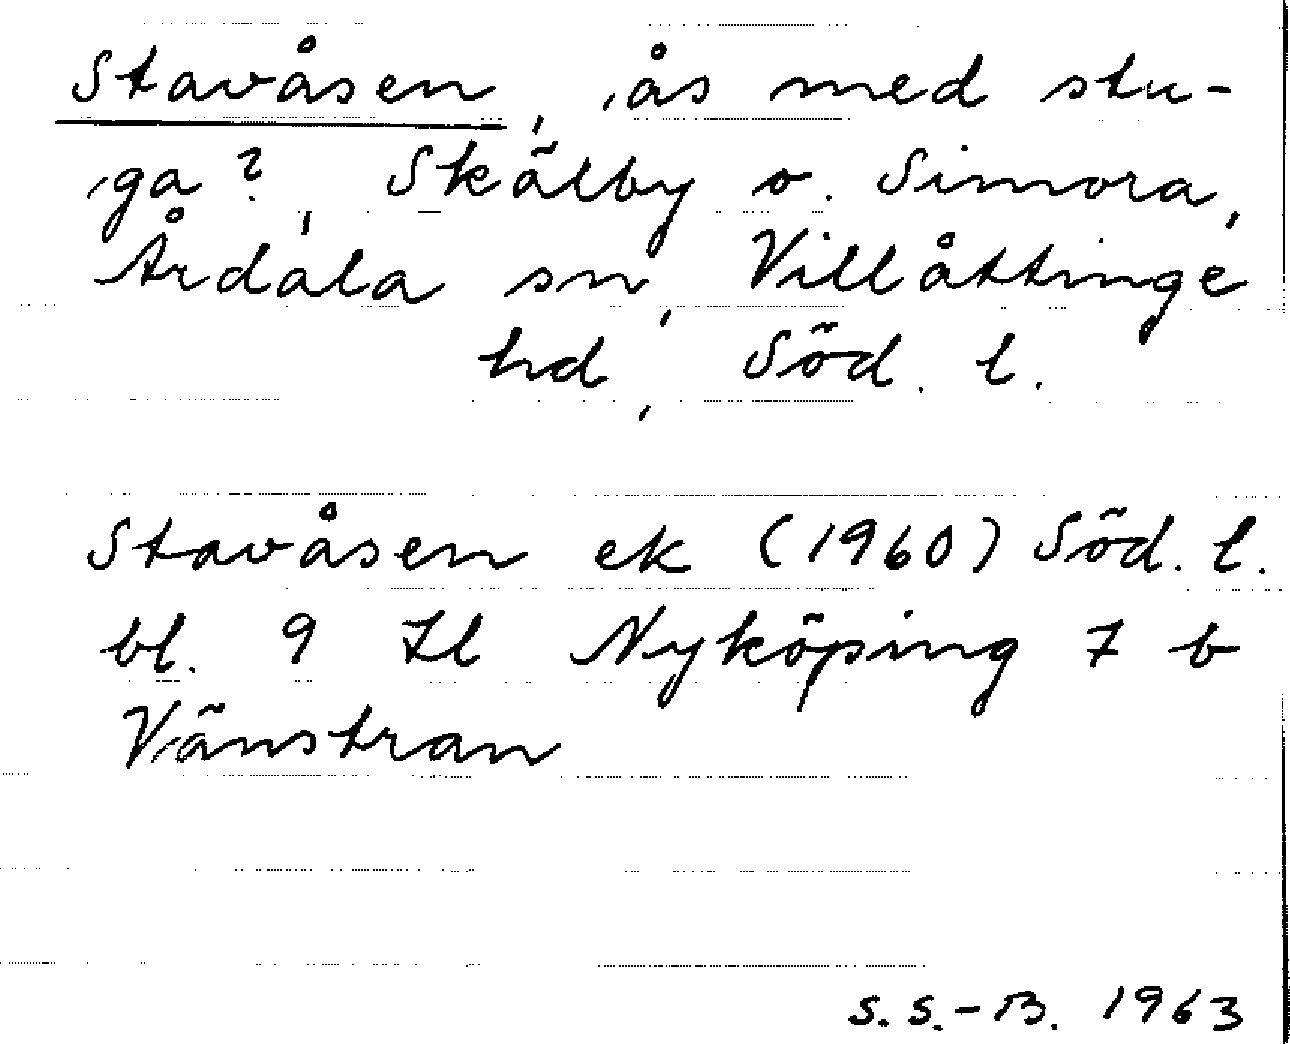 Stavåsen, ås med stu-
ga?, Skälby o. Simora,
Årdala sn, Villåttinge
hd, Söd. l.
Stavåsen ek (1960) Söd. l.
bl. 9 Il Nyköping 7 b
Vänstran
S. S.-B. 1963